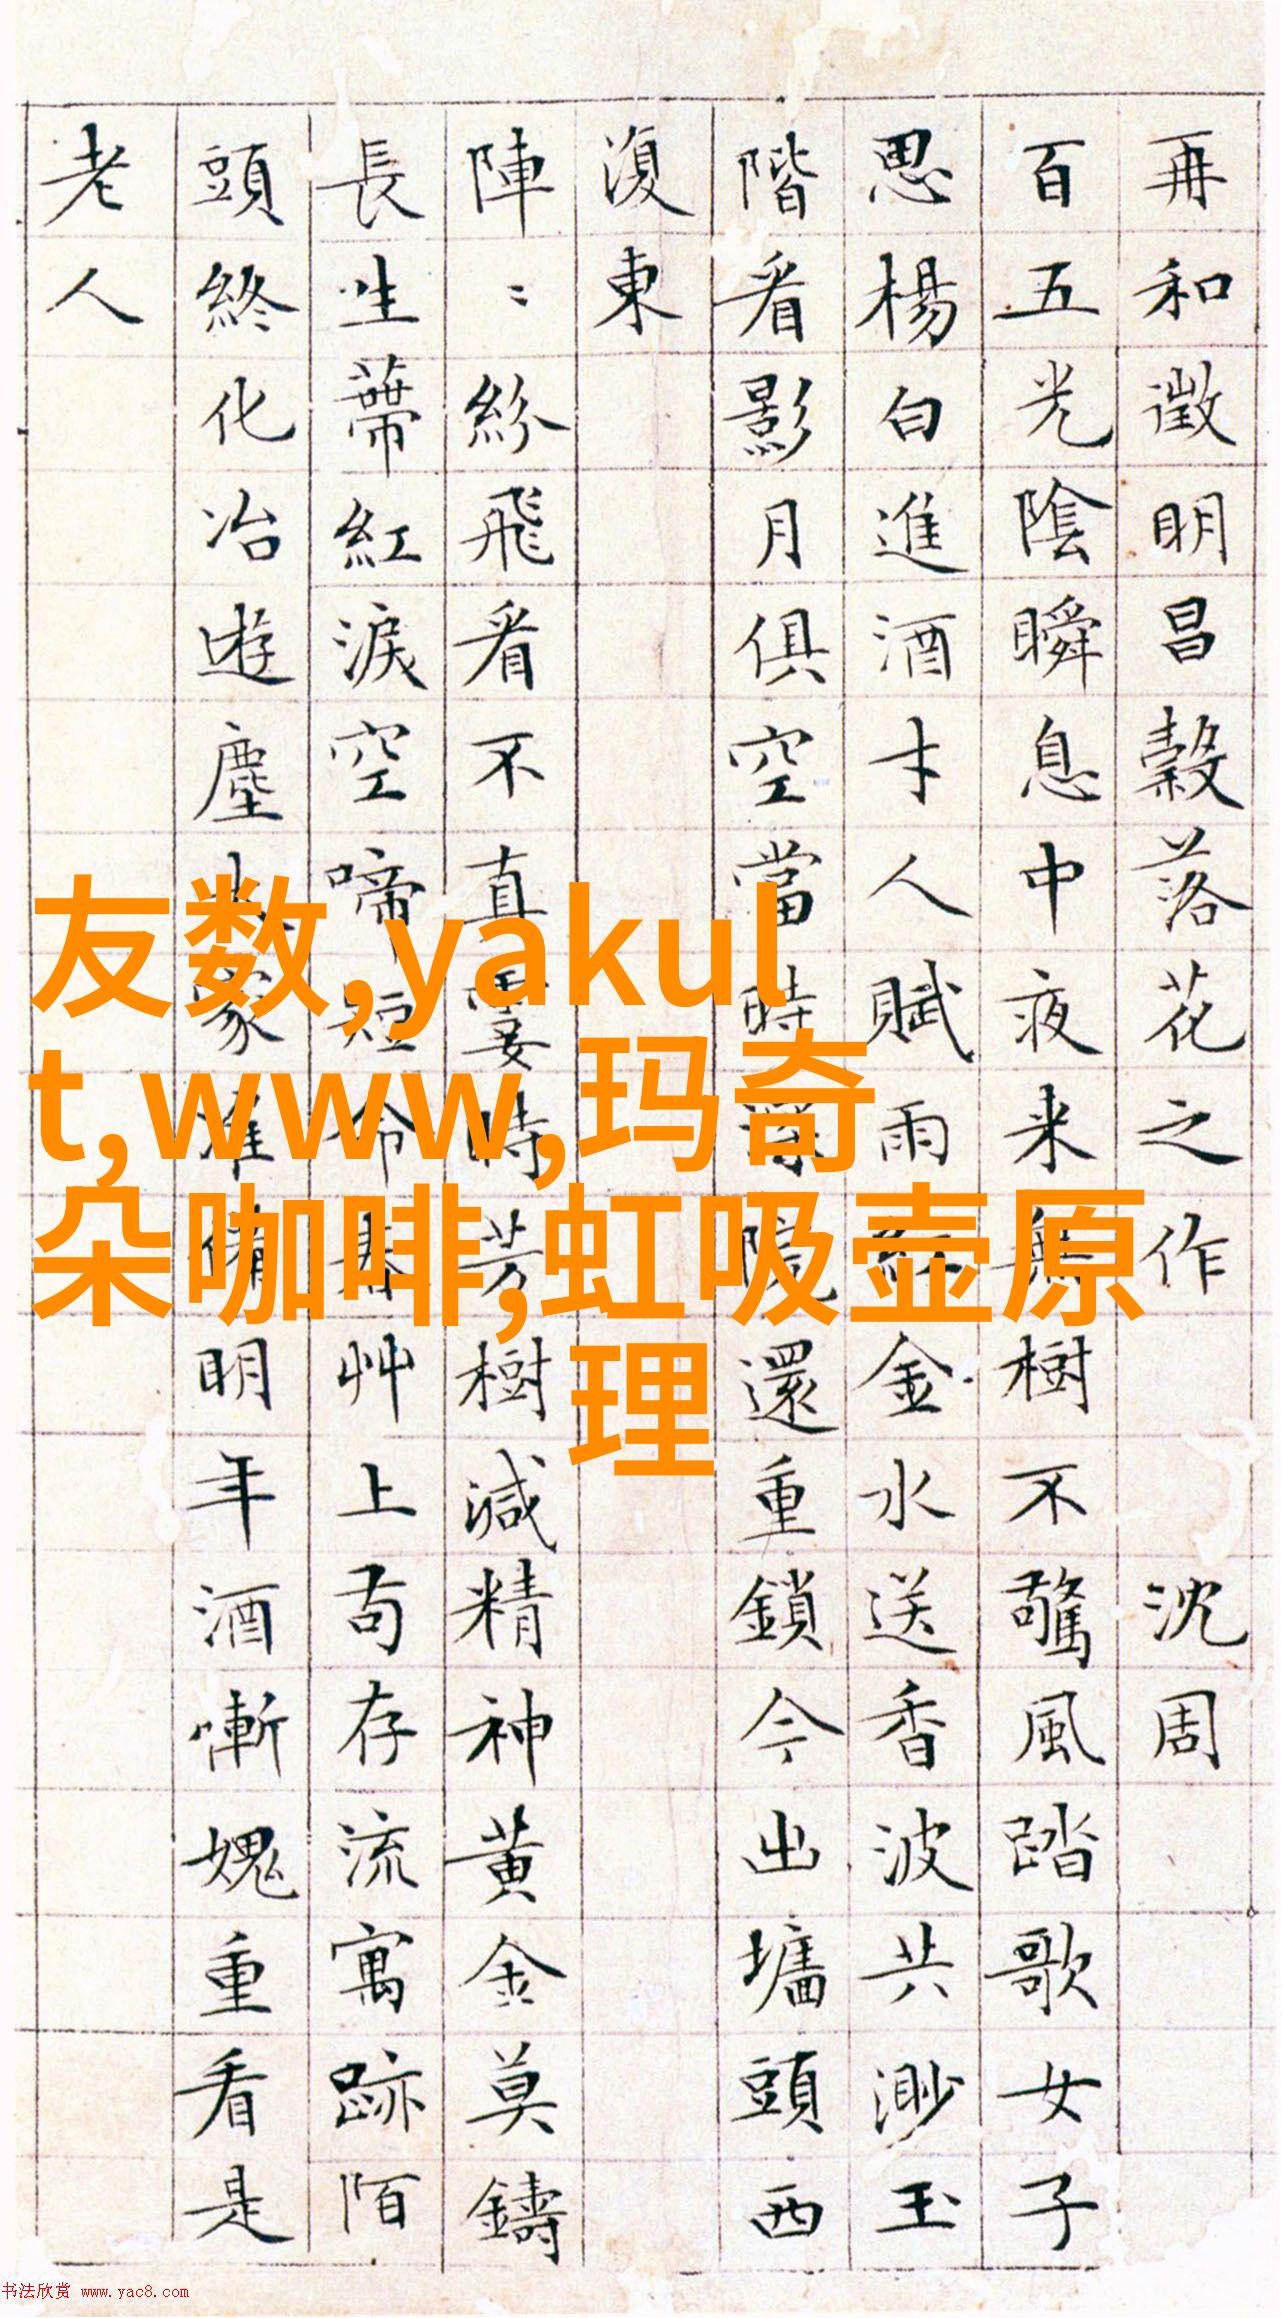 再和徵明昌穀落花之作 沈周
百五光陰瞬息中夜来無樹不驚風踏歌女子
思楊白進酒才人賦雨紅金水送香波共渺玉
階看影月俱空當時深院還重鎖今出墻頭西
復東
陣〻紛飛看不真霎時芳樹減精神黄金莫鑄
長生蔕紅淚空啼短命春艸上苟存流寓跡陌
頭終化冶遊塵大家准備明年酒慚媿重看是
老人
友数,yakul
t,www,玛奇
朵咖啡,虹吸壶原
理
书法欣赏 www.yac8.com